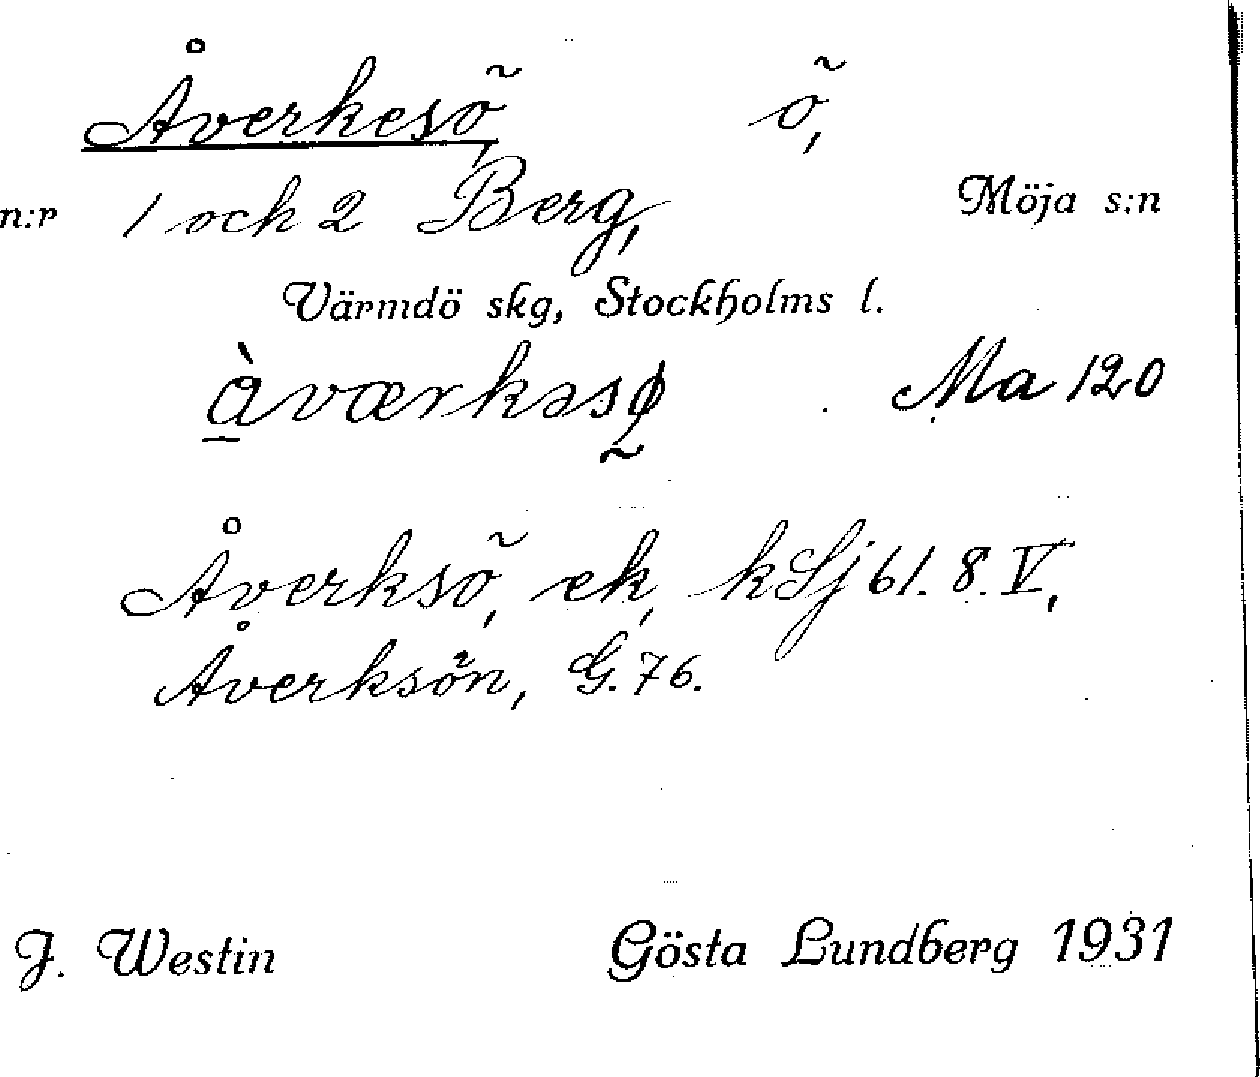 Åverkesö, ö,
n:r 1 och 2 Berg, Möja s:n
Värmdö skg, Stockholms l.
àværkəsø Ma 120
Åverksö, ek, kSj 61. 8. V,
Åverksön, G. 76.
J. Westin Gösta Lundberg 1931